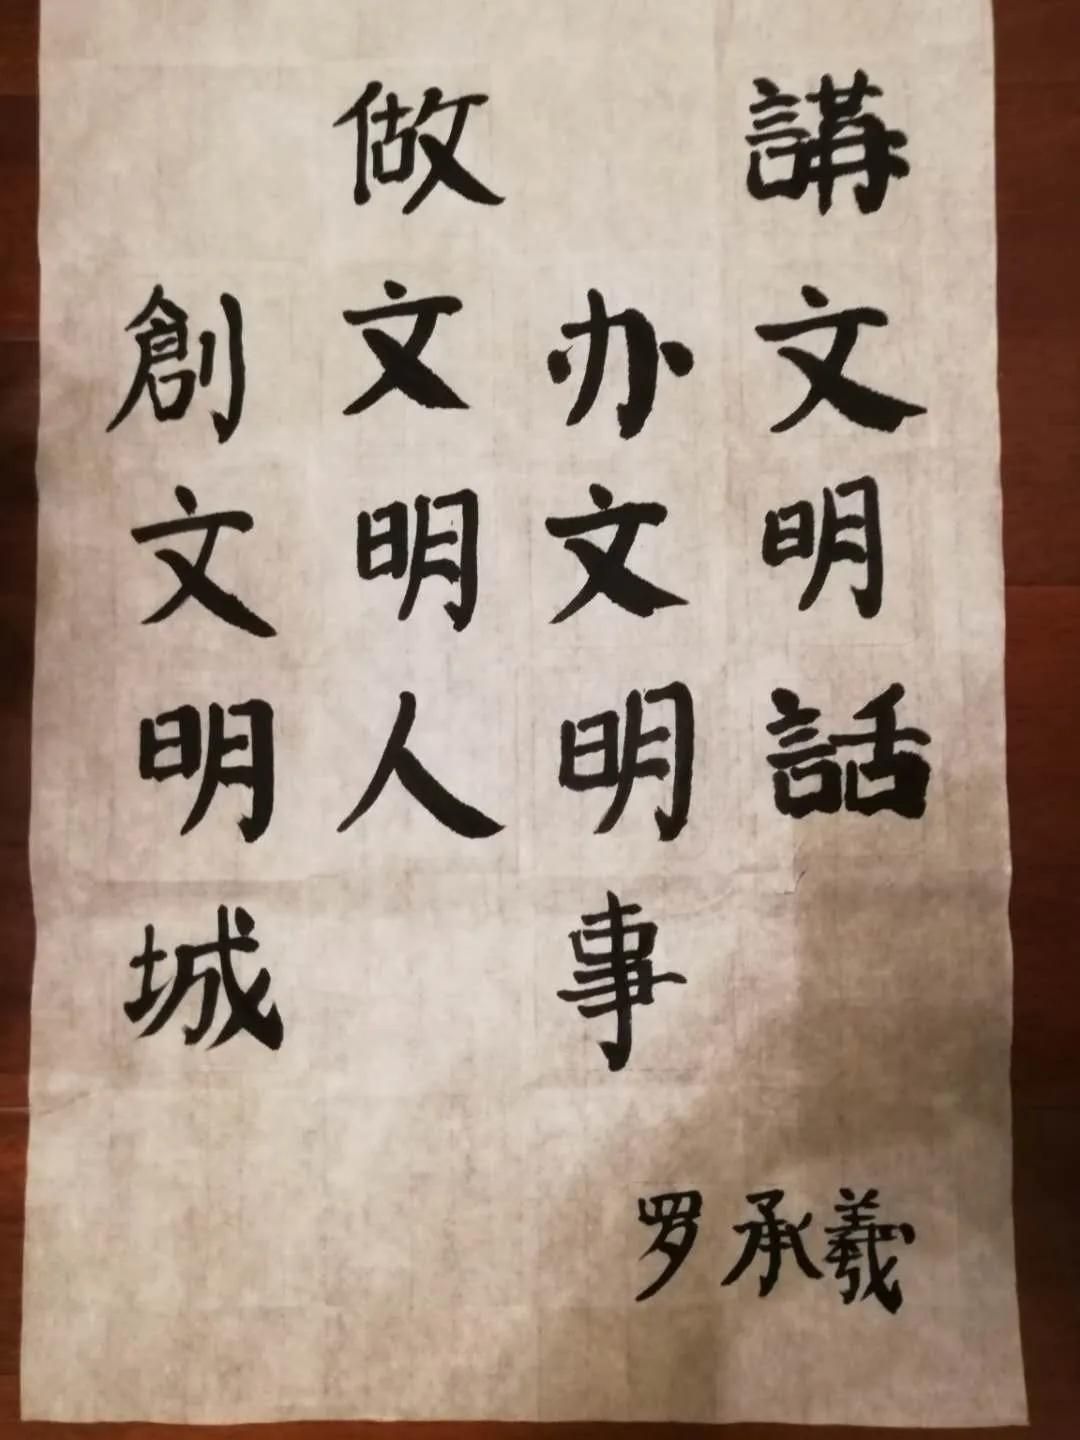 講文明話
办文明事
做文明人
創文明城
罗承羲